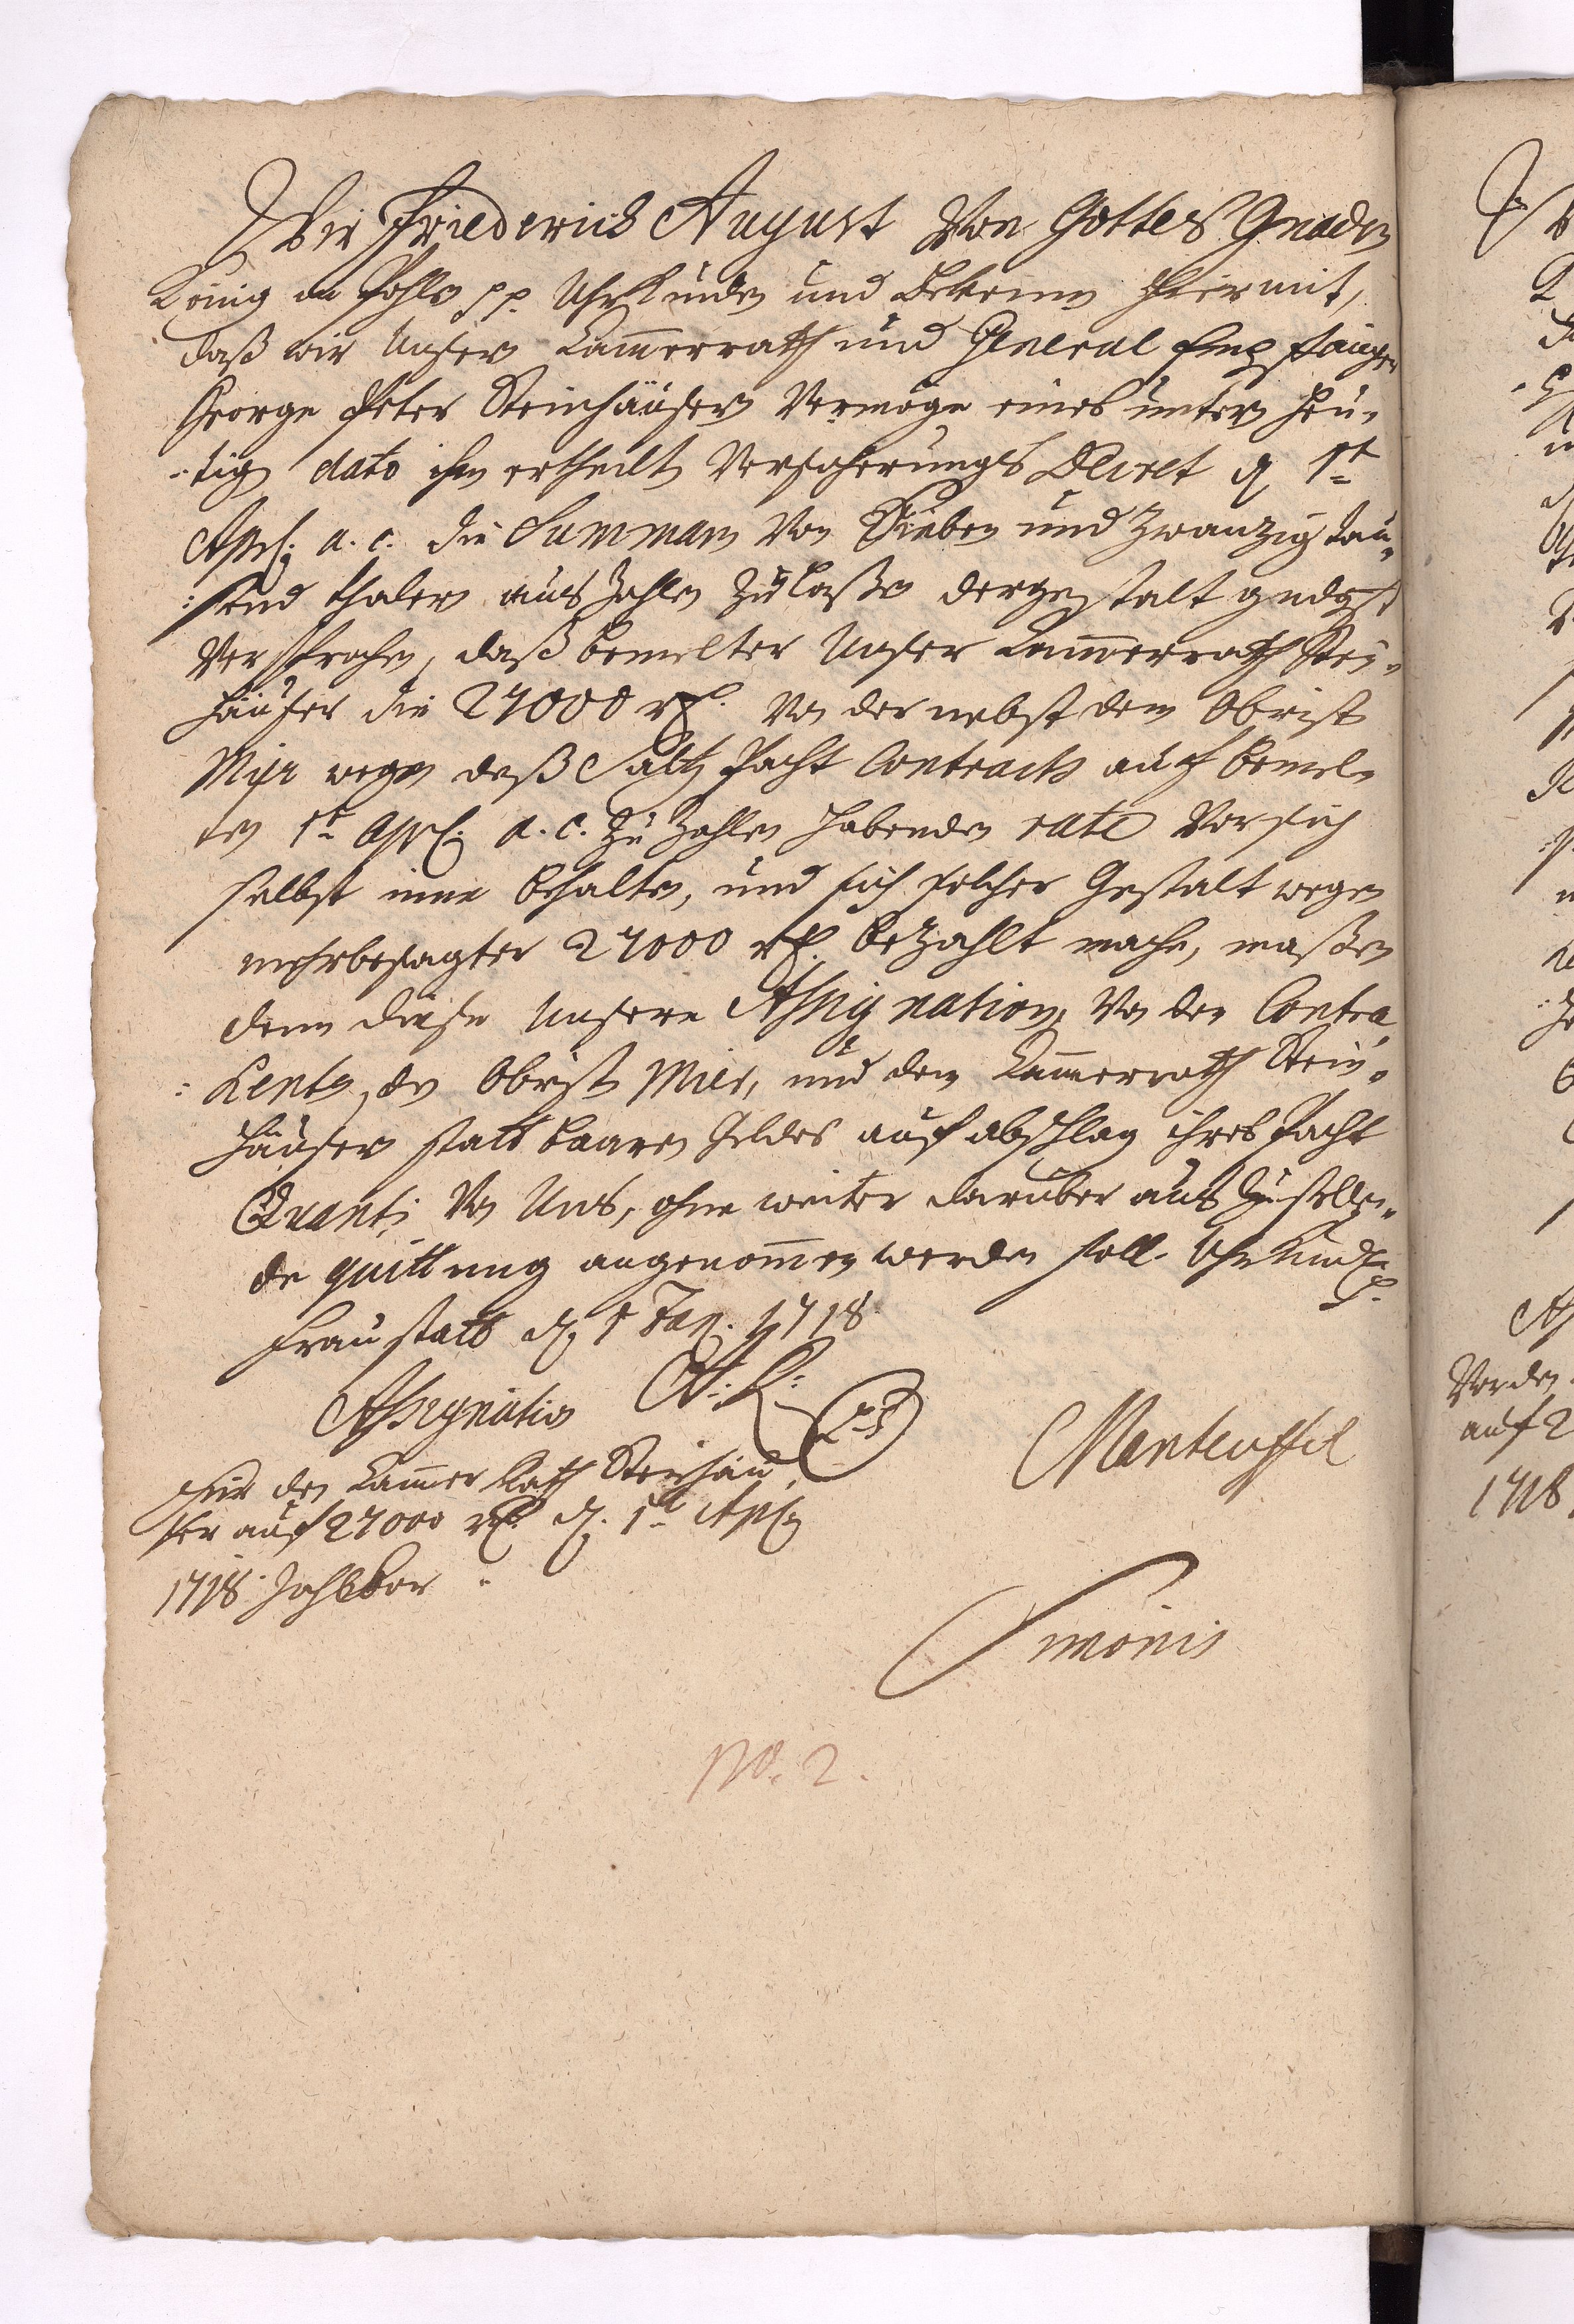 Wir Friederich August Von Gottes Gnaden
König in Pohlen pp. Uhrkunden und Bekennen hiermit,
daß wir Unsern Cammerrath und General Empfänger
George Peter Steinhäuser Vermöge eines untern heu-
-tigen dato ihm ertheilten Versicherungs Decret d. 1t
Apr: a. c. die Summam Von Sieben und Zwanzig tau-
:send thaler aus Zahlen Zu laßen dergestalt gndgst
Versprochen, daß bemelter Unser Cammerrath Stein-
häuser die 27000 rl. Von der nebst dem Obrist
Mier wegen deß Saltz Pacht Contracts auf bemel-
ten 1t Apr. a. c. Zu Zahlen habenden rate Vor sich
selbst inne behalten, und sich solcher Gestalt wegen
mehrbesagter 27000 rl. bezahlt mache, maßen
denn diese Unsere Assignation, Von den Contra
:henten, den Obrist Mier, und dem Cammerrath Stein-
häuser statt baaren Geldes auf abschlag ihres Pacht
Quanti Von Uns, ohne weiter darüber aus Zustellen-
de quittung angenommen werden soll. Uhrkundl.
Fraustatt d. 1 Jan. 1718.
Assignation A: R: LS
für den Cammer Rath Steinhäu
ser auf 27000 rl. d. 1t Apr.
1718. Zahlbar
Manteuffel
Simonis
No. 2.
Vor den
auf 2
1718.